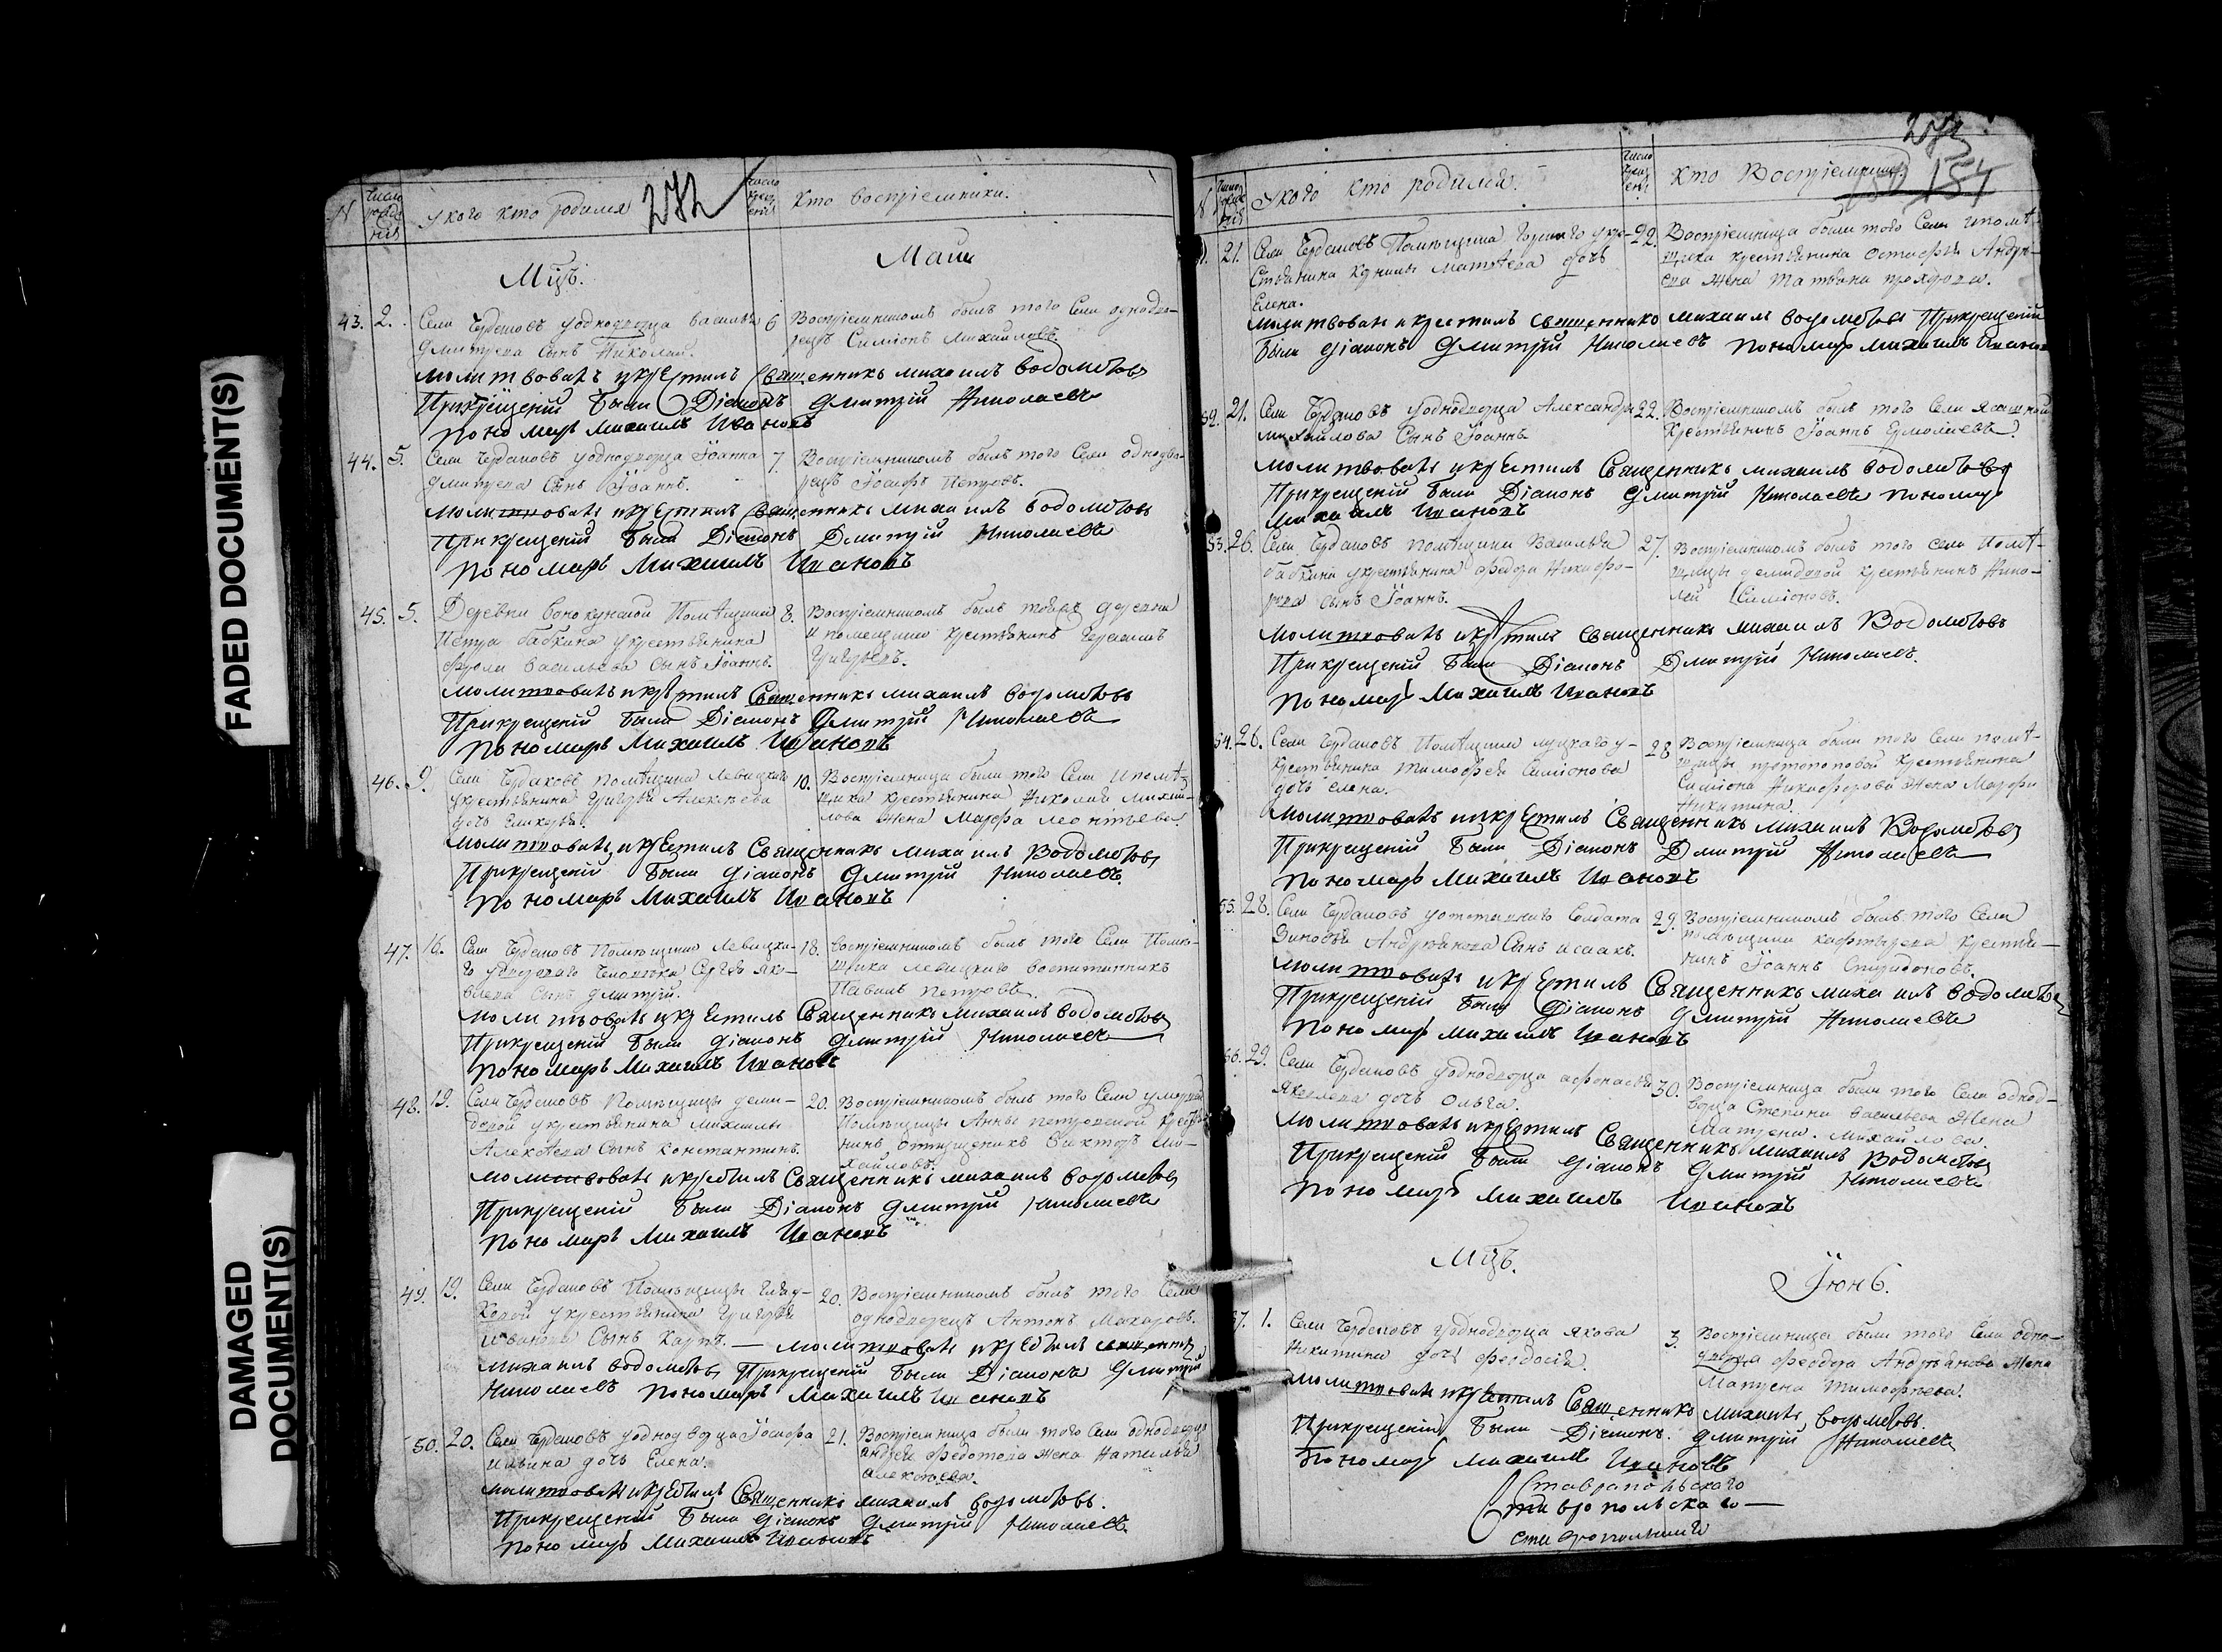 FADED DOCUMENT(S)
DAMAGED
DOCUMENT(S)
282
N
Число рождения
У кого кто родился
Число крещения
Кто восприемники.
Мцъ.
Маии
43. 2. Села Чердаковъ у однодворца Василья
Дмитрева сынъ Николай.
6 Восприемникомъ былъ того Села однодво-
рецъ Симіонъ Михайловъ.
Молитвовалъ и крестилъ Священникъ Михаилъ Водолѣтовъ
При крещеніи были Діаконъ Дмитрій Николаевъ
Пономарь Михаилъ Ивановъ
44. 5. Села Чердаковъ у однодворца Іоанна
Дмитрева Сынъ Іоаннъ.
7. Восприемникомъ былъ того Села однодво-
рецъ Іосифъ Петровъ.
Молитвовалъ и крестилъ Священникъ Михаилъ Водолѣтовъ
При крещеніи были Діаконъ Дмитрій Николаевъ
Пономарь Михаилъ Ивановъ
45. 5. Деревни Помѣщика
Петра Бабкина у крестьянина
Фрола Васильева сынъ Іоаннъ.
8. Восприемникомъ былъ тойже деревни
и помещика крестьянинъ Герасимъ
Григорьевъ.
Молитвовалъ и крестилъ Священникъ Михаилъ Водолѣтовъ
При крещеніи были Діаконъ Дмитрій Николаевъ
Пономарь Михаилъ Ивановъ
46. 9. Села Чердаковъ помѣщика Левицкаго
у крестьянина Григорья Алексѣева
дочь Гликерья.
10. Восприемница были того Села и помѣ-
щика крестьянина Николая Михай-
лова жена Марфа Леонтьева.
Молитвовалъ и крестилъ Священникъ Михаилъ Водолѣтовъ
При крещеніи были Діаконъ Дмитрій Николаевъ
Пономарь Михаилъ Ивановъ
47. 16. Села Чердаковъ Помѣщика Левицка-
го у дворового человѣка Сергѣя Яко-
влева Сынъ Дмитрій.
18. Восприемникомъ былъ того Села Помѣ-
щика Левицкаго воспитанникъ
Павелъ Петровъ.
Молитвовалъ и крестилъ Священникъ Михаилъ Водолѣтовъ
При крещеніи были Діаконъ Дмитрій Николаевъ
Пономарь Михаилъ Ивановъ
48. 19. Села Чердаковъ Помѣщицы Деми-
довой у крестьянина Михаилы
Алексѣева Сынъ Константинъ.
20. Восприемникомъ былъ того Села
Помѣщицы Анны Петровской крестья-
нинъ отпущеникъ Викторъ Ми-
хайловъ.
Молитвовалъ и крестилъ Священникъ Михаилъ Водолѣтовъ
При крещеніи были Діаконъ Дмитрій Николаевъ
Пономарь Михаилъ Ивановъ
49. 19. Села Чердаковъ Помѣщицы
у крестьянина Григорья
Иванова Сынъ Карпъ.
20. Восприемникомъ былъ того Села
однодворецъ Антонъ Макаровъ.
Молитвовалъ и крестилъ священникъ
Михаилъ Водолѣтовъ При крещеніи были Діаконъ Дмитрій
Николаевъ Пономарь Михаилъ Ивановъ
50. 20. Села Чердаковъ у однодворца Іосифа
Ильина дочь Елена.
21. Восприемница были того Села однодворца
Андрея Федотова жена Наталья
Алексѣева.
Молитвовалъ и крестилъ Священникъ Михаилъ Водолѣтовъ.
При крещеніи были Діаконъ Дмитрій Николаевъ.
Пономарь Михаилъ Ивановъ
154
У кого кто родился.
Число крещения
Кто Восприемники
21. Села Чердаковъ Помѣщика у кре-
стьянина Матвѣева дочь
Елена.
22. Восприемница были того Села и помѣ-
щика крестьянина Андре-
ева жена Татьяна Прохорова.
Молитвовалъ и крестилъ священникъ Михаилъ Водолѣтовъ При крещеніи
были Діаконъ Дмитрій Николаевъ Пономарь Михаилъ Ивановъ
52. 21. Села Чердаковъ у однодворца Александра
Михайлова Сынъ Іоаннъ
22. Восприемникомъ былъ того Села ясашной
крестьянинъ Іоаннъ Ермолаевъ.
Молитвовалъ и крестилъ Священникъ Михаилъ Водолѣтовъ
При крещеніи были Діаконъ Дмитрій Николаевъ Пономарь
Михаилъ Ивановъ
53. 26. Села Чердаковъ помѣщика Василья
Бабкина у крестьянина Федора Никифо-
рова сынъ Іоаннъ.
27. Восприемникомъ былъ того села помѣ-
щицы Демидовой крестьянинъ Нико-
лай Симіоновъ.
Молитвовалъ и крестилъ Священникъ Михаилъ Водолѣтовъ
При крещеніи были Діаконъ Дмитрій Николаевъ.
Пономарь Михаилъ Ивановъ
54. 26. Села Чердаковъ Помѣщика Луцкаго у
крестьянина Тимофея Симіонова
дочь Елена.
28 Восприемница были того Села помѣ-
щицы Протопоповой крестьянина
Симіона Никифорова жена Марфа
Никитина.
Молитвовалъ и крестилъ Священникъ Михаилъ Водолѣтовъ
При крещеніи были Діаконъ Дмитрій Николаевъ
Пономарь Михаилъ Ивановъ
55. 28. Села Чердаковъ у отставнаго Солдата
Зиновья Андреянова Сынъ Исаакъ.
29. Восприемникомъ былъ того Села
помѣщика крестья-
нинъ Іоаннъ Спиридоновъ.
Молитвовалъ и крестилъ Священникъ Михаилъ Водолѣтовъ
При крещеніи были Діаконъ Дмитрій Николаевъ
Пономарь Михаилъ Ивановъ
56. 29. Села Чердаковъ у однодворца Афонасья
Яковлева дочь Ольга.
30. Восприемница были того Села однод-
ворца Степана Васильева жена
Матрена Михайлова.
Молитвовалъ и крестилъ Священникъ Михаилъ Водолѣтовъ
При крещеніи были Діаконъ Дмитрій Николаевъ
Пономарь Михаилъ Ивановъ
Мцъ.
Іюнь.
57. 1. Села Чердаковъ у однодворца Якова
Никитина дочь Феодосія.
3. Восприемница были того Села одно-
дворца Феодора Андреянова жена
Матрена Тимофѣева.
Молитвовалъ и крестилъ Священникъ Михаилъ Водолѣтовъ.
При крещеніи были Діаконъ Дмитрій Николаевъ
Пономарь Михаилъ Ивановъ
Ставропольскаго
Ставропольскаго